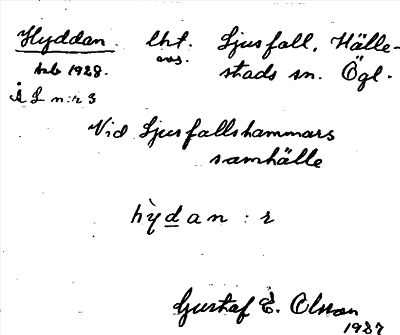 Hyddan lht. Ljusfall, Hälle-
avs. stads sn. Ögl.
1928.
n:r 3
Vid Ljusfallshammars
samhälle
hỳdan : r
Gustaf E. Olsson
1927